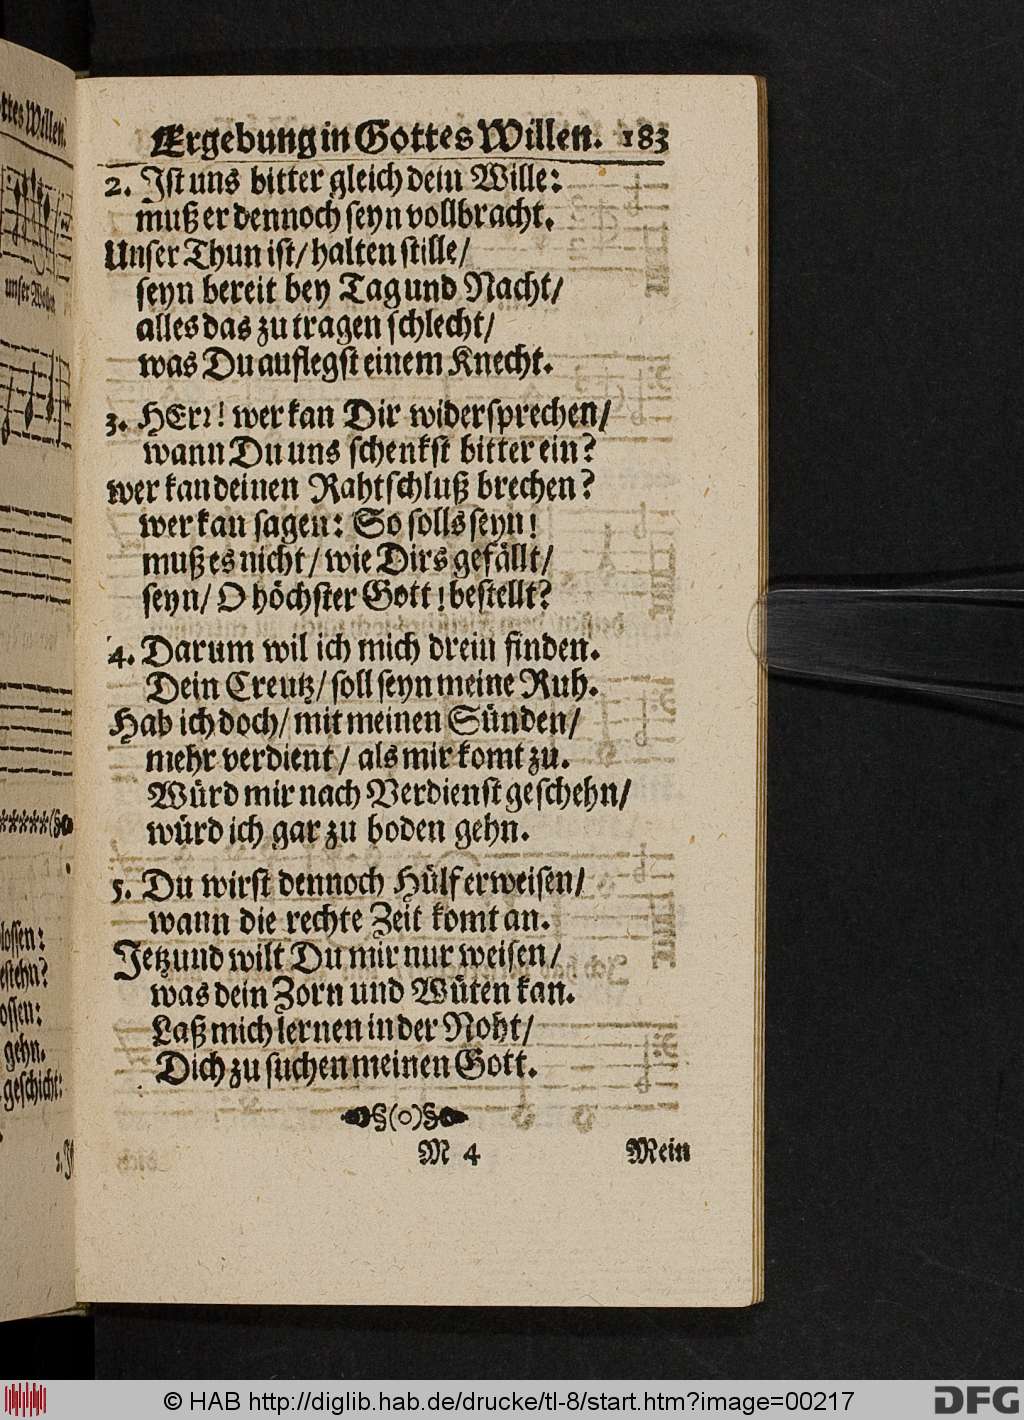 Ergebung in Gottes Willen. 183
2. Ist uns bitter gleich dein Wille:
muß er dennoch seyn vollbracht.
Unser Thun ist/ halten stille/
seyn bereit bey Tag und Nacht/
alles das zu tragen schlecht/
was Du auflegst einem Knecht.
3. HErr! wer kan Dir widersprechen/
wann Du uns schenkst bitter ein?
wer kan deinen Rahtschluß brechen?
wer kan sagen: So solls seyn!
muß es nicht/ wie Dirs gefällt/
seyn/ O höchster Gott! bestellt?
4. Darum wil ich mich drein finden.
Dein Creutz/ soll seyn meine Ruh.
Hab ich doch/ mit meinen Sünden/
mehr verdient/ als mir komt zu.
Würd mir nach Verdienst geschehn/
würd ich gar zu boden gehn.
5. Du wirst dennoch Hülf erweisen/
wann die rechte Zeit komt an.
Jetzund wilt Du mir nur weisen/
was dein Zorn und Wüten kan.
Laß mich lernen in der Noht/
Dich zu suchen meinen Gott.
§(o)§
M 4 Mein
ttes Willen.
unser
lossen:
estehn?
ossen:
gehn.
geschicht:
© HAB http://diglib.hab.de/drucke/tl-8/start.htm?image=00217
DFG